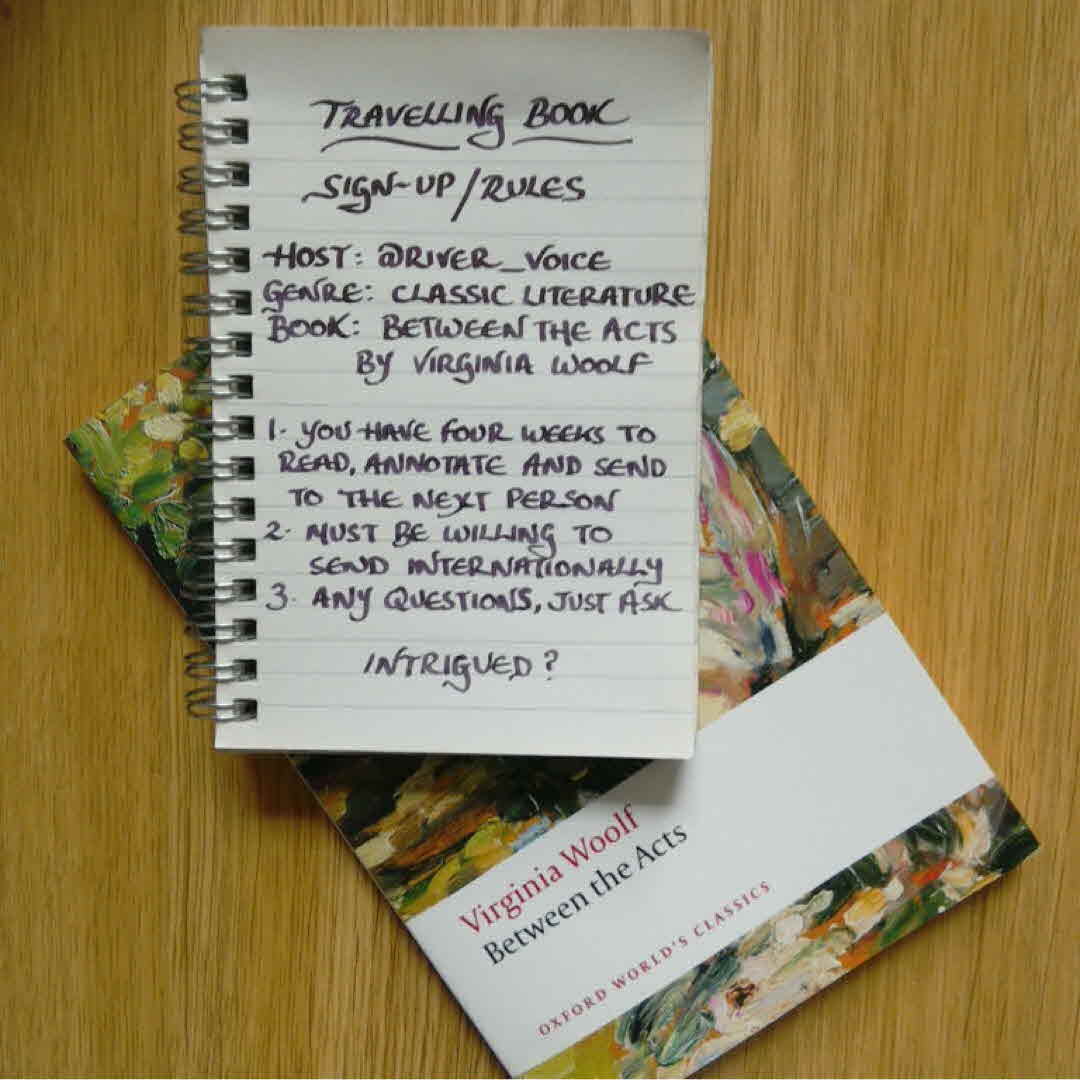 TRAVELLING BOOK
SIGN-UP/RULES
HOST: @RIVER_VOICE
GENRE: CLASSIC LITERATURE
BOOK: BETWEEN THE ACTS
BY VIRGINIA WOOLF
1. YOU HAVE FOUR WEEKS TO
READ, ANNOTATE AND SEND
TO THE NEXT PERSON
2. MUST BE WILLING TO
SEND INTERNATIONALLY
3. ANY QUESTIONS, JUST ASK
INTRIGUED?
Virginia Woolf
Between the Acts
OXFORD WORLD'S CLASSICS